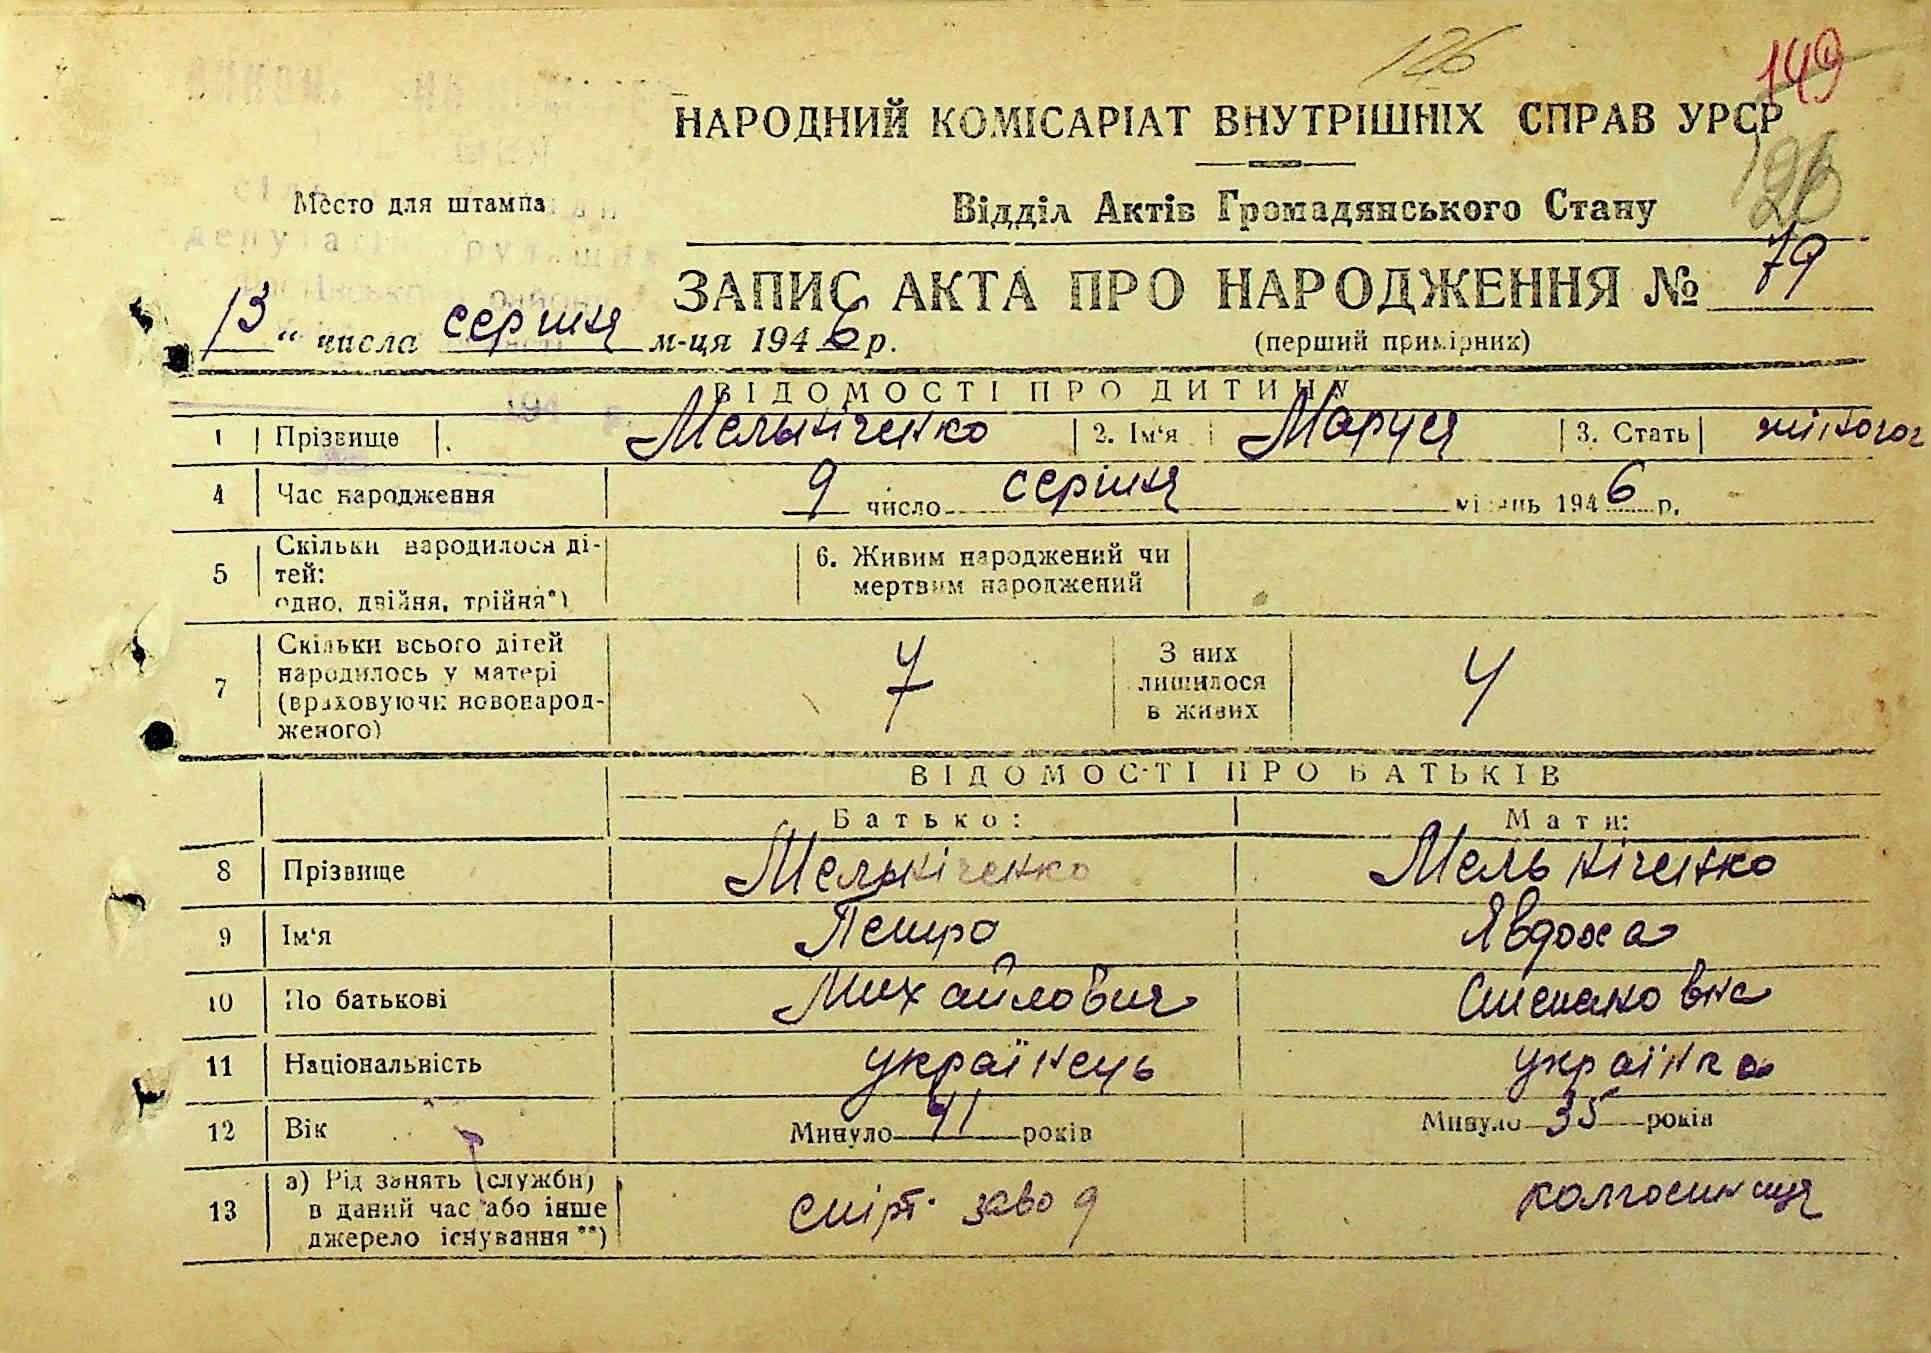 126
149
НАРОДНИЙ КОМІСАРІАТ ВНУТРІШНІХ СПРАВ УРСР
126
Место для штампа
Відділ Актів Громадянського Стану
ЗАПИС АКТА ПРО НАРОДЖЕННЯ № 79
13 " числа серпня м-ця 1946 р.
(перший примірник)
ВІДОМОСТІ ПРО ДИТИНУ
1 Прізвище Мельніченко 2. Ім'я Маруся 3. Стать жіночої
4 Час народження 9 число серпня місяць 1946 р.
5 Скільки народилося дітей: одно, двійня, трійня*) 6. Живим народжений чи мертвим народжений
7 Скільки всього дітей народилось у матері (враховуючи новонародженого) 7 З них лишилося в живих 4
ВІДОМОСТІ ПРО БАТЬКІВ
Батько: Мати:
8 Прізвище Мельніченко Мельніченко
9 Ім'я Петро Явдоха
10 По батькові Михайлович Степановна
11 Національність українець українка
12 Вік Минуло 41 років Минуло 35 років
13 а) Рід занять (служби) в даний час або інше джерело існування **) спірт. завод колгоспниця